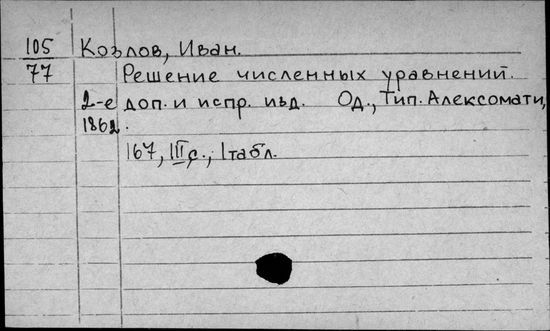 105 Козлов, Иван.
77 Решение численных уравнений.
2-е доп. и испр. изд. Од., Тип. Алексомати,
1862.
167, III с., 1 табл.